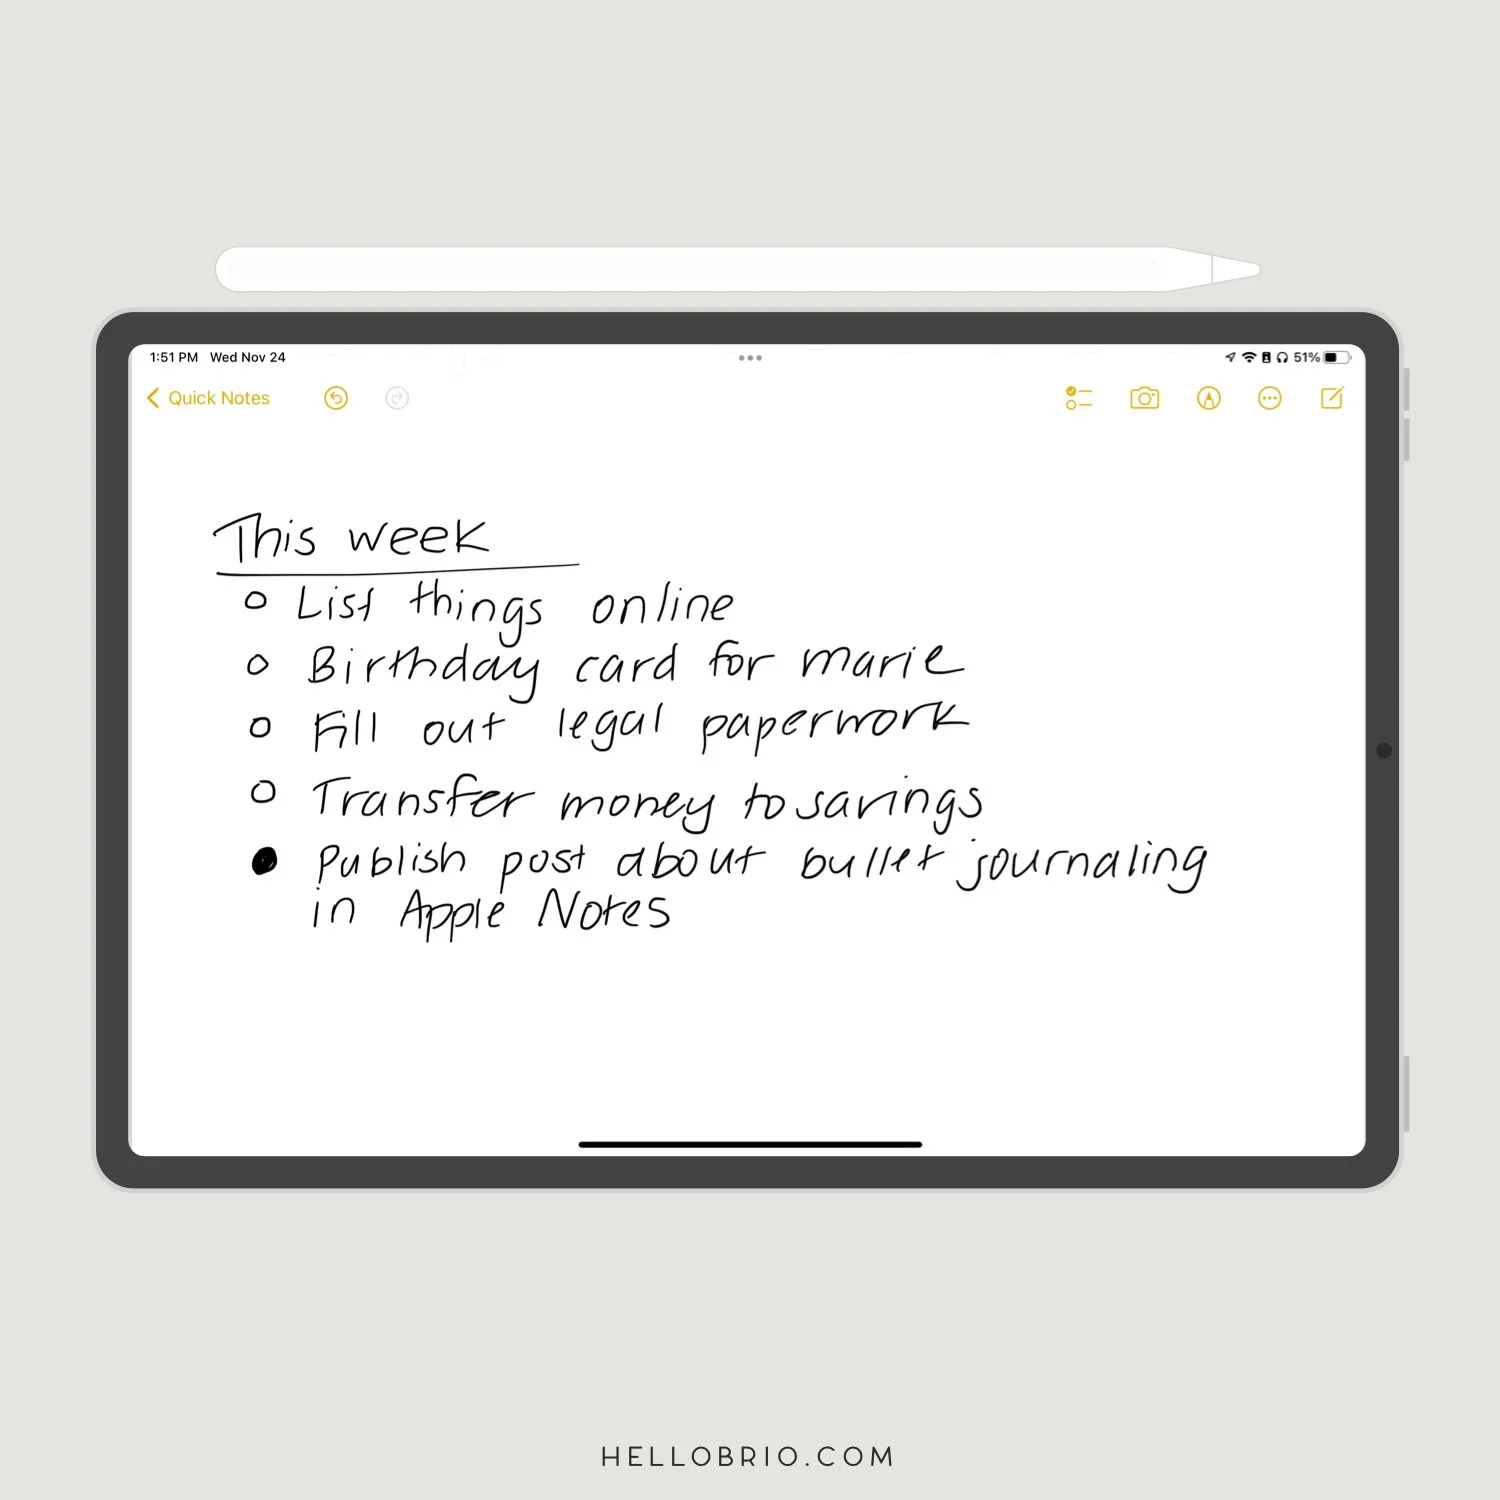 1:51 PM Wed Nov 24 51%
Quick Notes
This week
List things online
Birthday card for marie
Fill out legal paperwork
Transfer money to savings
Publish post about bullet journaling
in Apple Notes
HELLOBRIO.COM